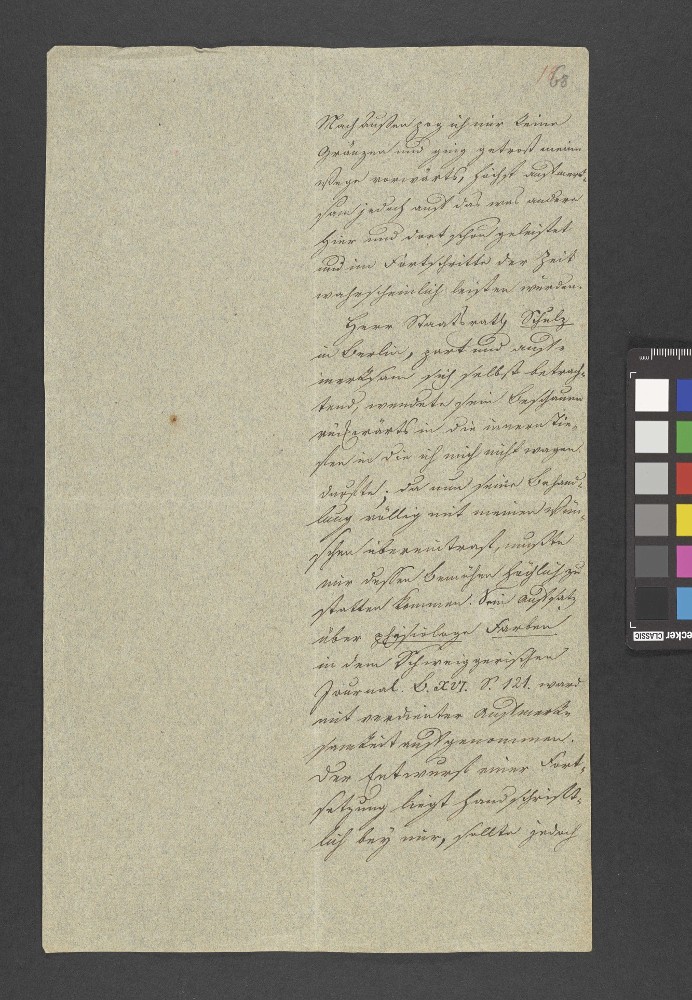 68
Nach Außen zog ich mir keine
Gränzen und ging getrost meine
Wege vorwärts, höchst aufmerk-
sam jedoch auf das was andere
hier und dort schon geleistet
und im Fortschritte der Zeit
wahrscheinlich leisten würden.
Herr Staatsrath Schulz
in Berlin, zart und auf-
merksam sich selbst betrach-
tend, wendete sein Beschauen
rückwärts in die innern Tie-
fen in die ich mich nicht wagen
durfte; da nun seine Behand-
lung völlig mit meinen Wün-
schen übereintraf, mußte
mir dessen Bemühen höchlich zu
statten kommen. Sein Aufsatz
über physiologe Farben
in dem Schweiggerischen
Journal. B. XVI. S. 121. ward
mit verdienter Aufmerk-
samkeit aufgenommen.
Der Entwurf einer Fort-
setzung liegt handschrift-
lich bey mir, sollte jedoch